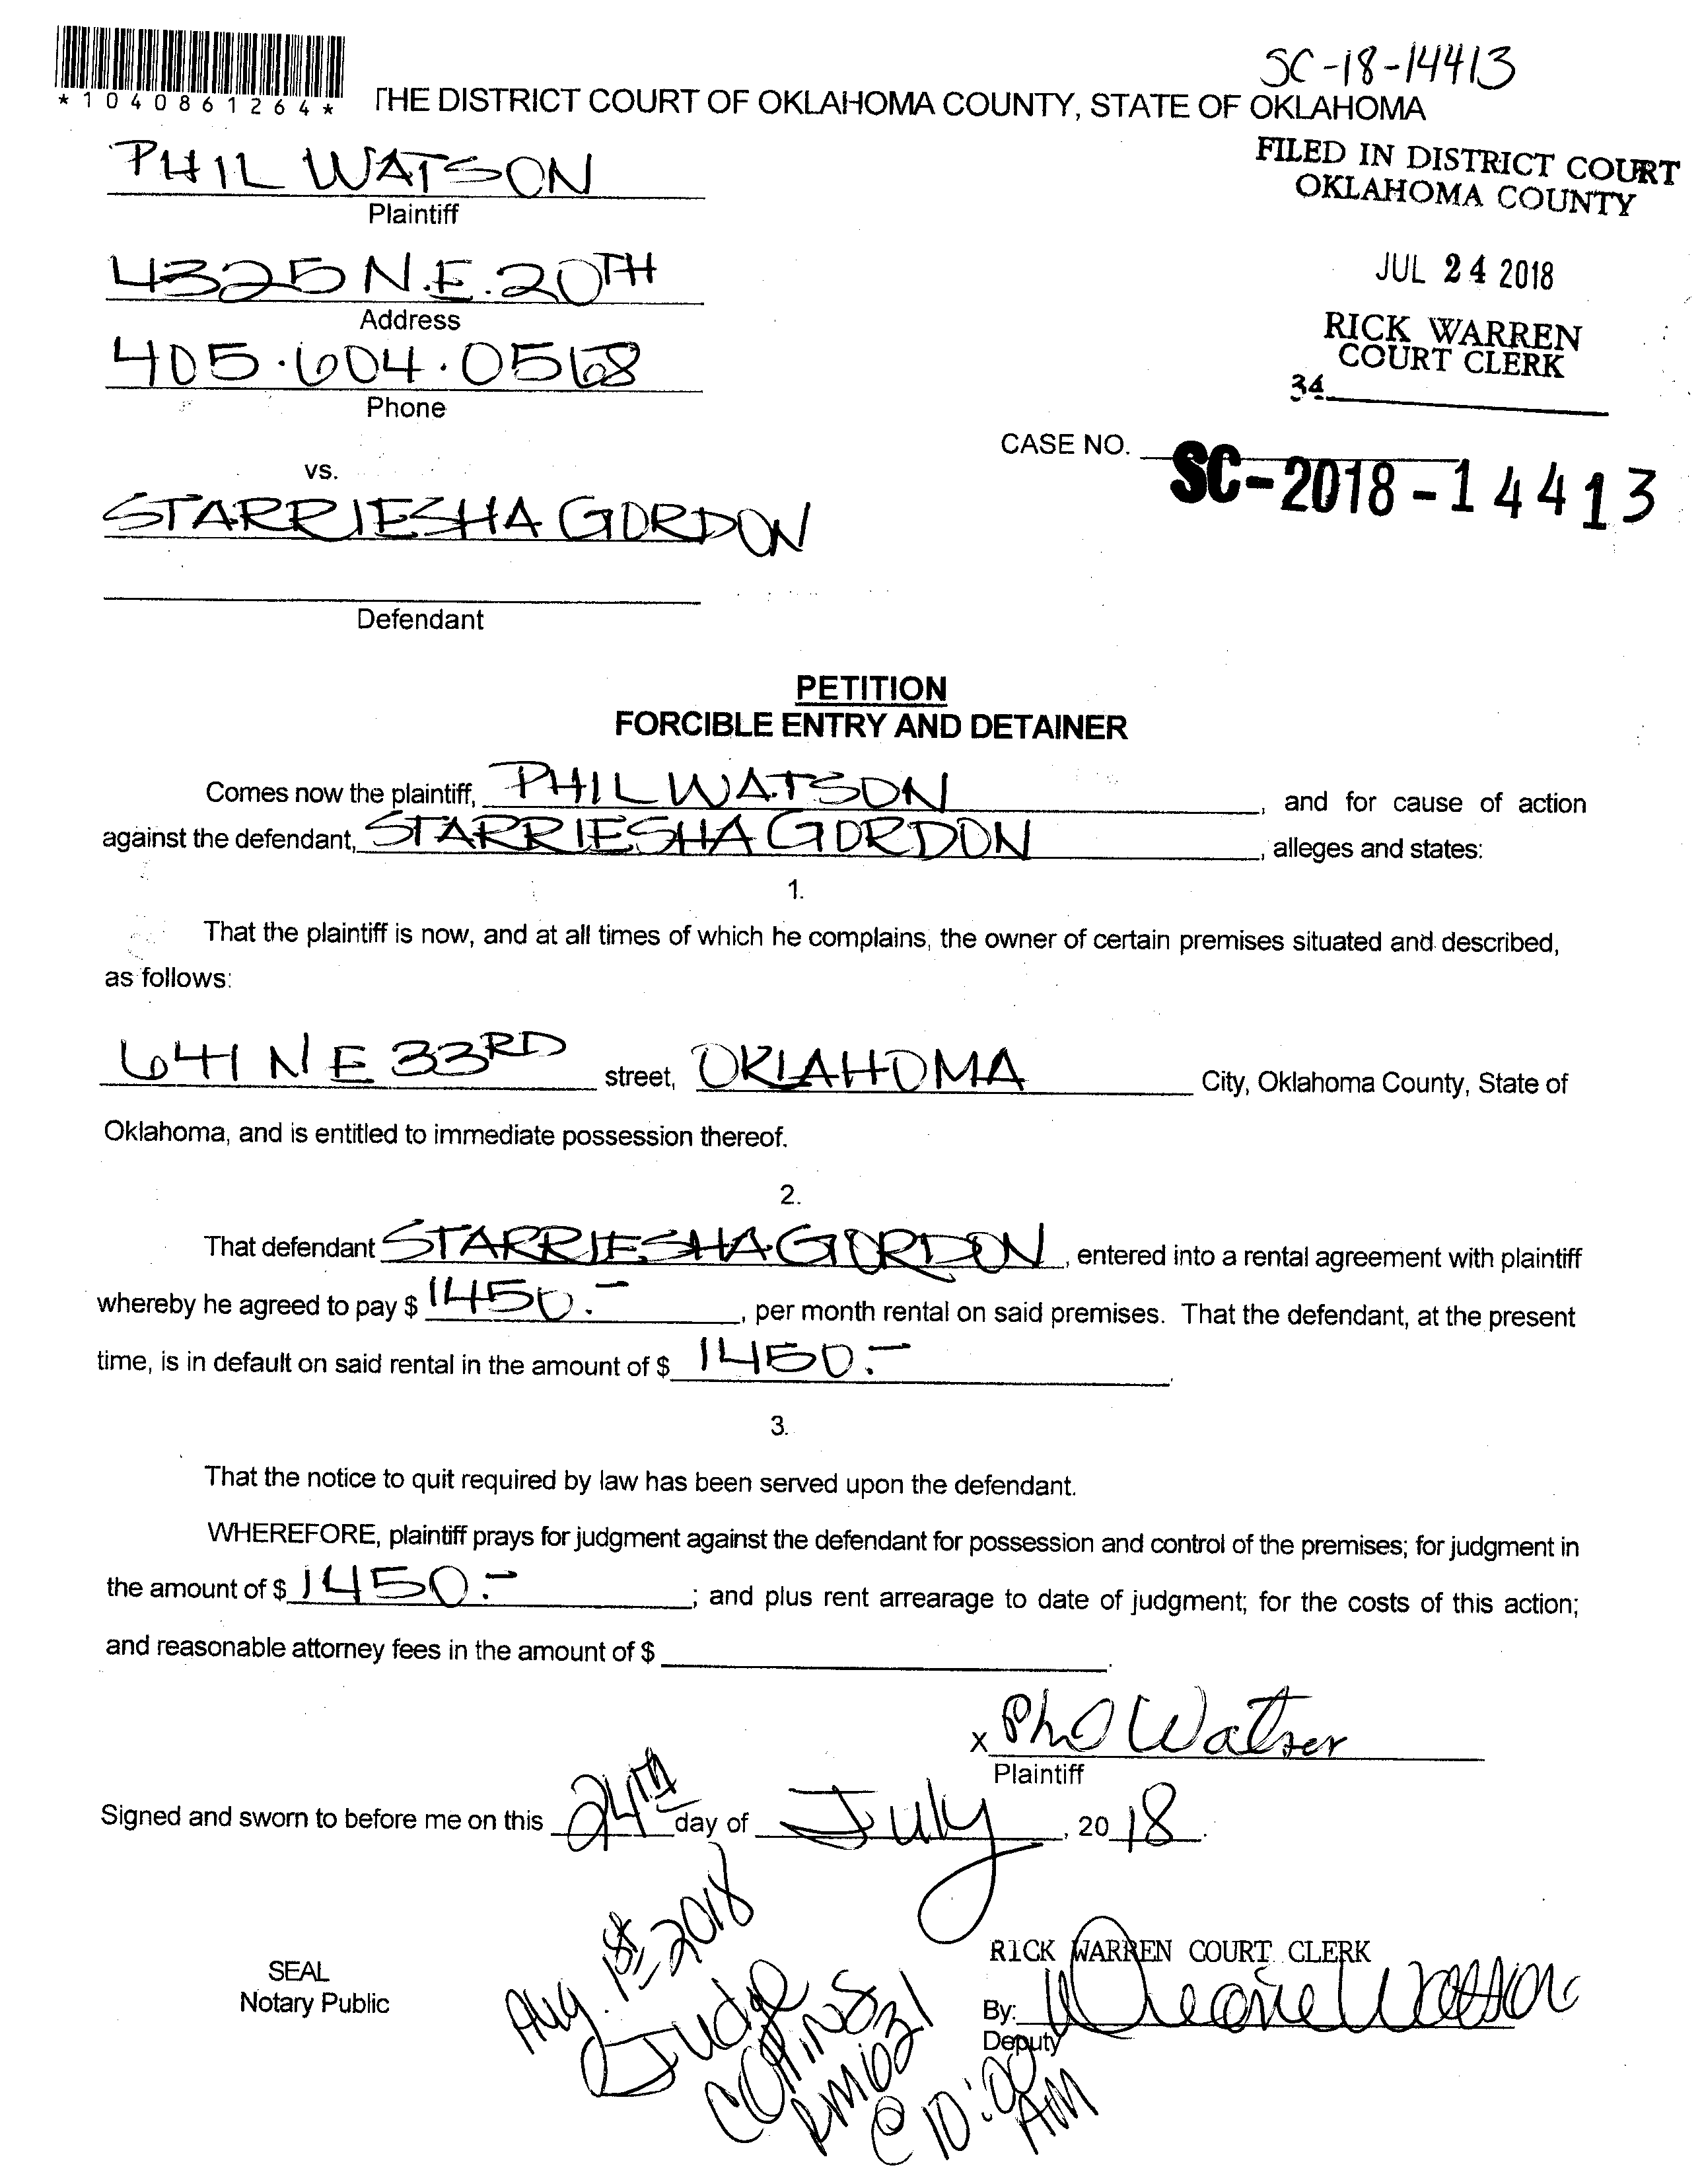 SC-18-14413
*1040861264*
THE DISTRICT COURT OF OKLAHOMA COUNTY, STATE OF OKLAHOMA
PHIL WATSON
Plaintiff
FILED IN DISTRICT COURT
OKLAHOMA COUNTY
4325 N.E. 20TH
Address
JUL 24 2018
405.604.0568
Phone
RICK WARREN
COURT CLERK
34
CASE NO. SC-2018-14413
vs.
STARRIESHA GORDON
Defendant
PETITION
FORCIBLE ENTRY AND DETAINER
Comes now the plaintiff, PHIL WATSON, and for cause of action
against the defendant, STARRIESHA GORDON, alleges and states:
1.
That the plaintiff is now, and at all times of which he complains, the owner of certain premises situated and described,
as follows:
641 N E 33RD street, OKLAHOMA City, Oklahoma County, State of
Oklahoma, and is entitled to immediate possession thereof.
2.
That defendant STARRIESHA GORDON, entered into a rental agreement with plaintiff
whereby he agreed to pay $ 1450.-, per month rental on said premises. That the defendant, at the present
time, is in default on said rental in the amount of $ 1450.-.
3.
That the notice to quit required by law has been served upon the defendant.
WHEREFORE, plaintiff prays for judgment against the defendant for possession and control of the premises; for judgment in
the amount of $ 1450.-; and plus rent arrearage to date of judgment; for the costs of this action;
and reasonable attorney fees in the amount of $ .
x Phil Watson
Plaintiff
Signed and sworn to before me on this 24th day of July, 2018.
Aug. 1st 2018
Judge
Collins
RM 1021
@ 10:00
AM
SEAL
Notary Public
RICK WARREN COURT CLERK
By:
Deputy